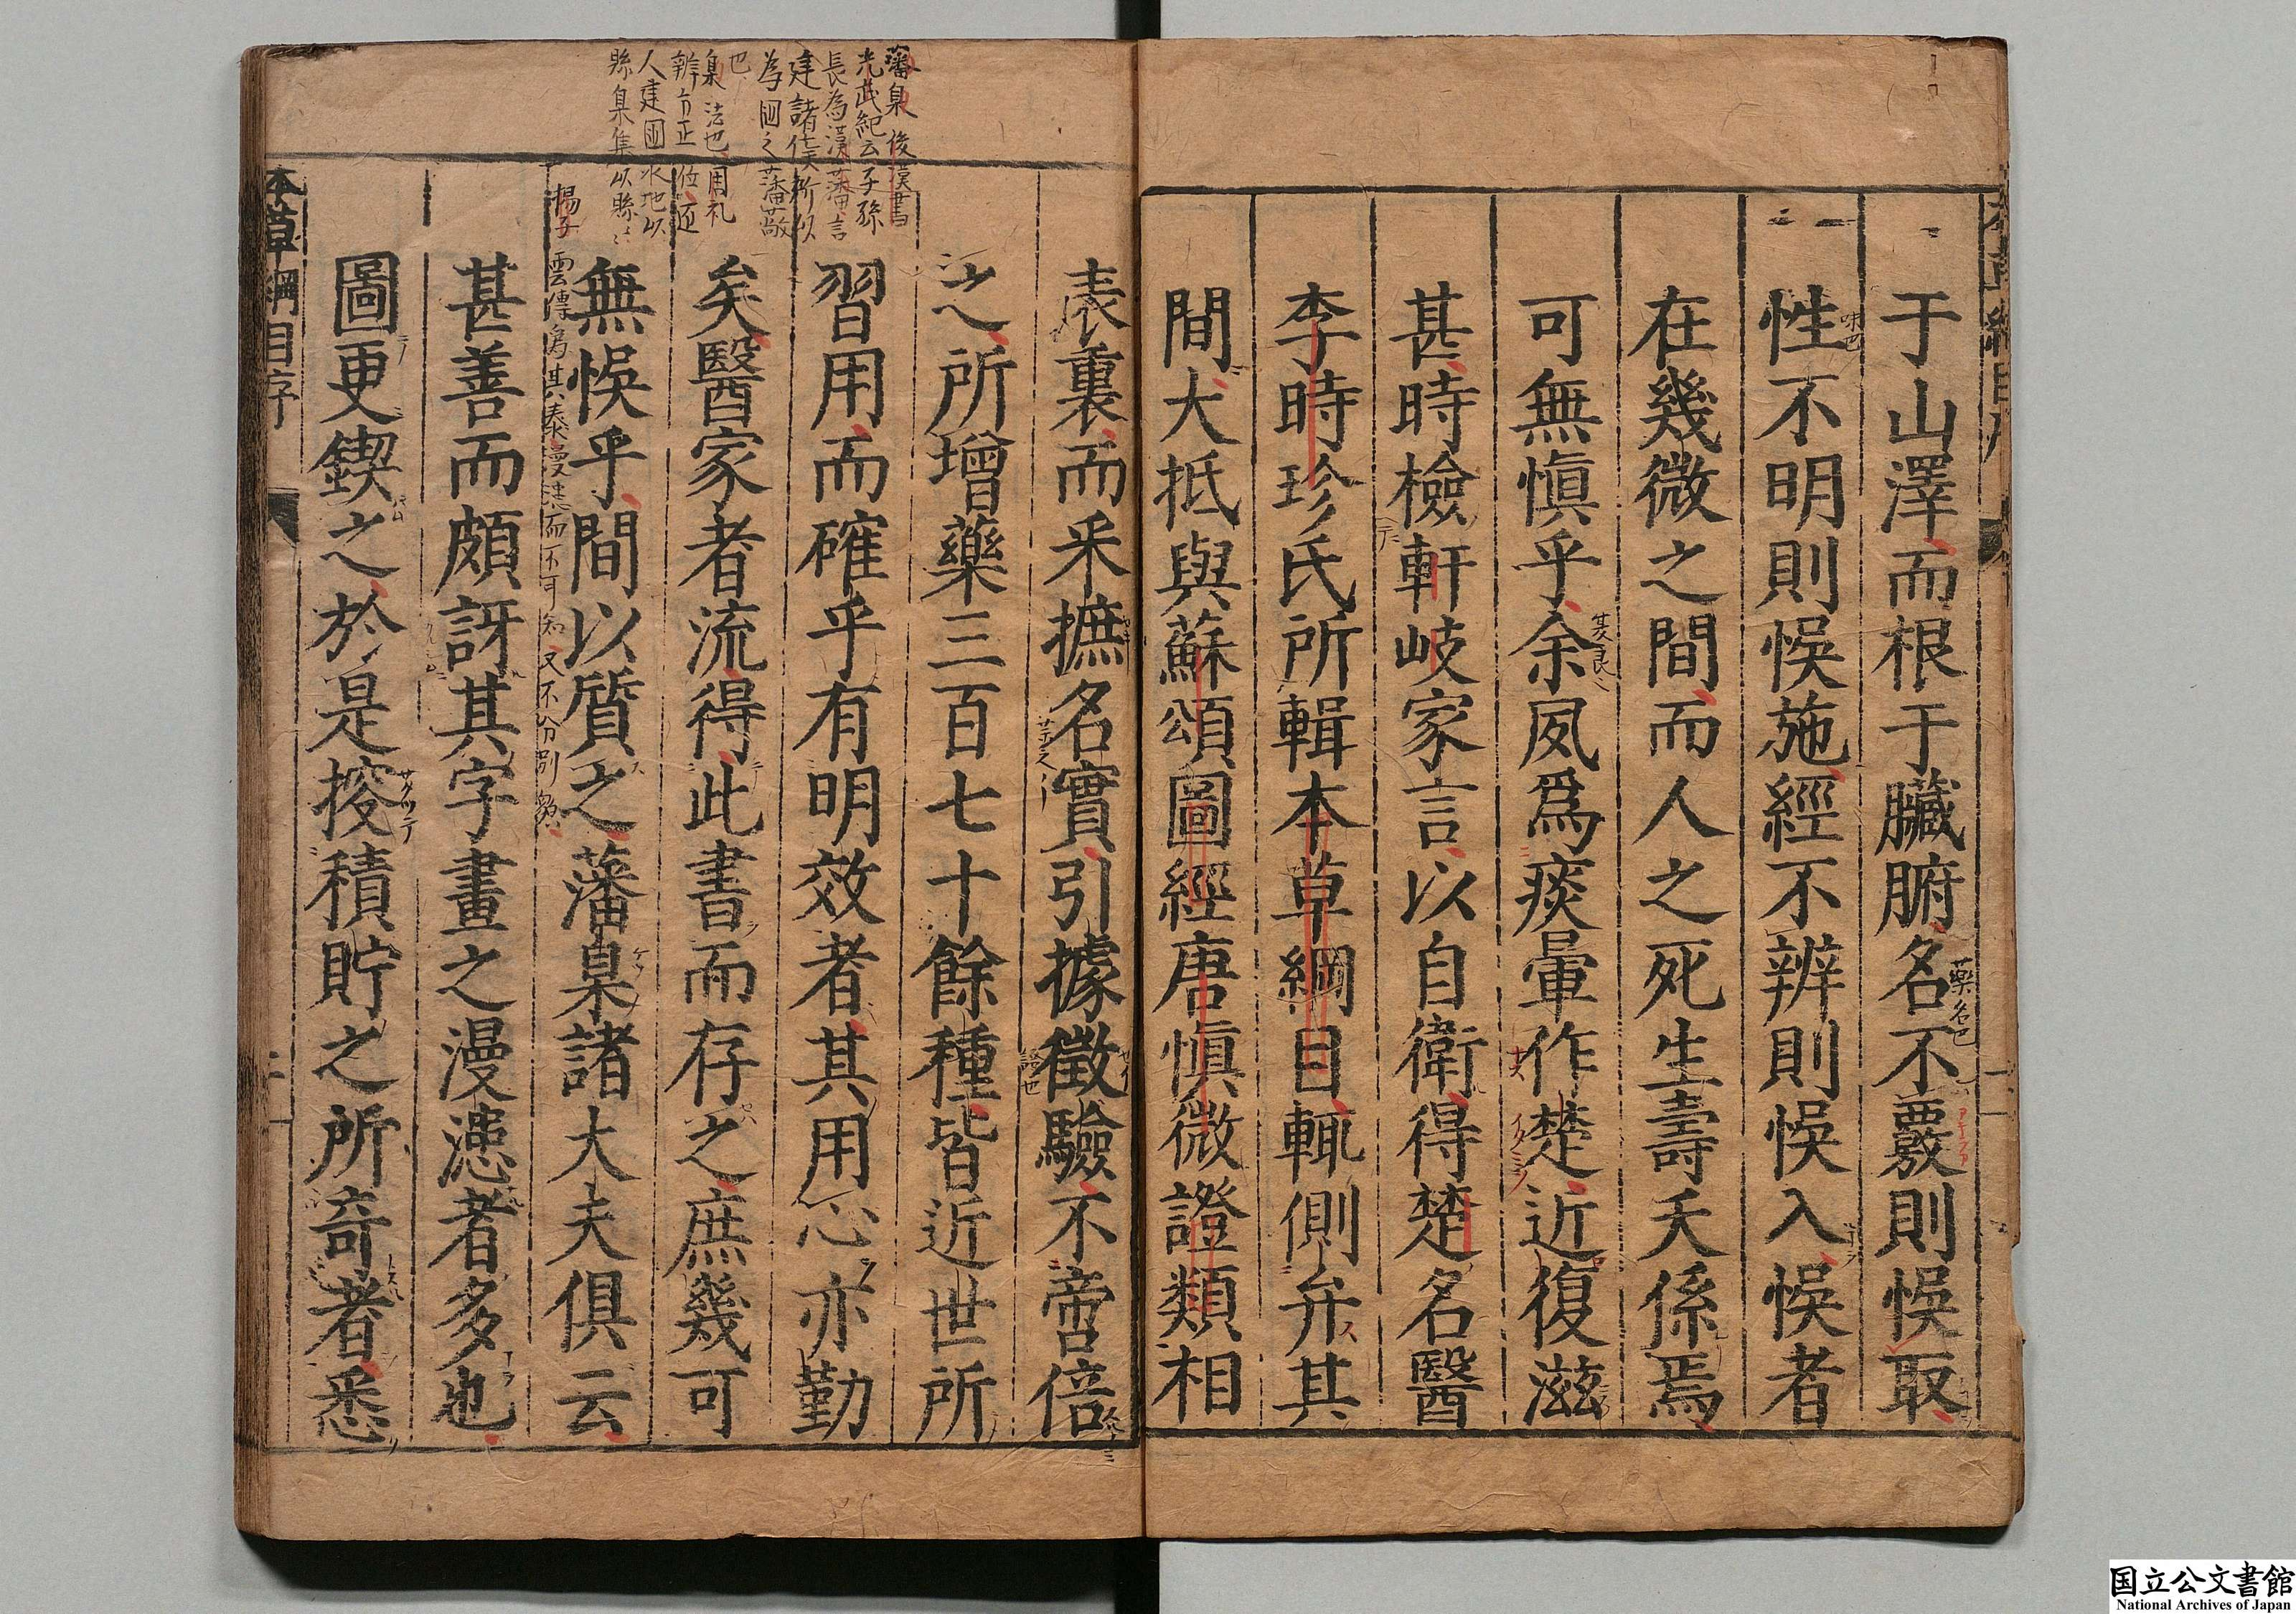 于山澤而根于臟腑名不覈則悞取
性不明則悞施經不辨則悞入悞者
在幾微之間而人之死生壽夭係焉
可無慎乎余夙爲痰暈作楚近復滋
甚時檢軒岐家言以自衛得楚名醫
李時珍氏所輯本草綱目輒側弁其
間大抵與蘇頌圖經唐慎微證類相
表裏而采摭名實引據徵驗不啻倍
之所增藥三百七十餘種皆近世所
習用而確乎有明效者其用心亦勤
矣醫家者流得此書而存之庶幾可
無悞乎間以質之藩臬諸大夫俱云
甚善而頗訝其字畫之漫漶者多也
圖更鍥之於是挍積貯之所竒者悉
本草綱目序
藩臬後漢書
光武紀云子孫
長為漢藩言
建諸侯所以
為國之藩蔽
也
臬法也周礼
辨方正位
人建國水地以
縣
味也
藥名也
国立公文書館
National Archives of Japan